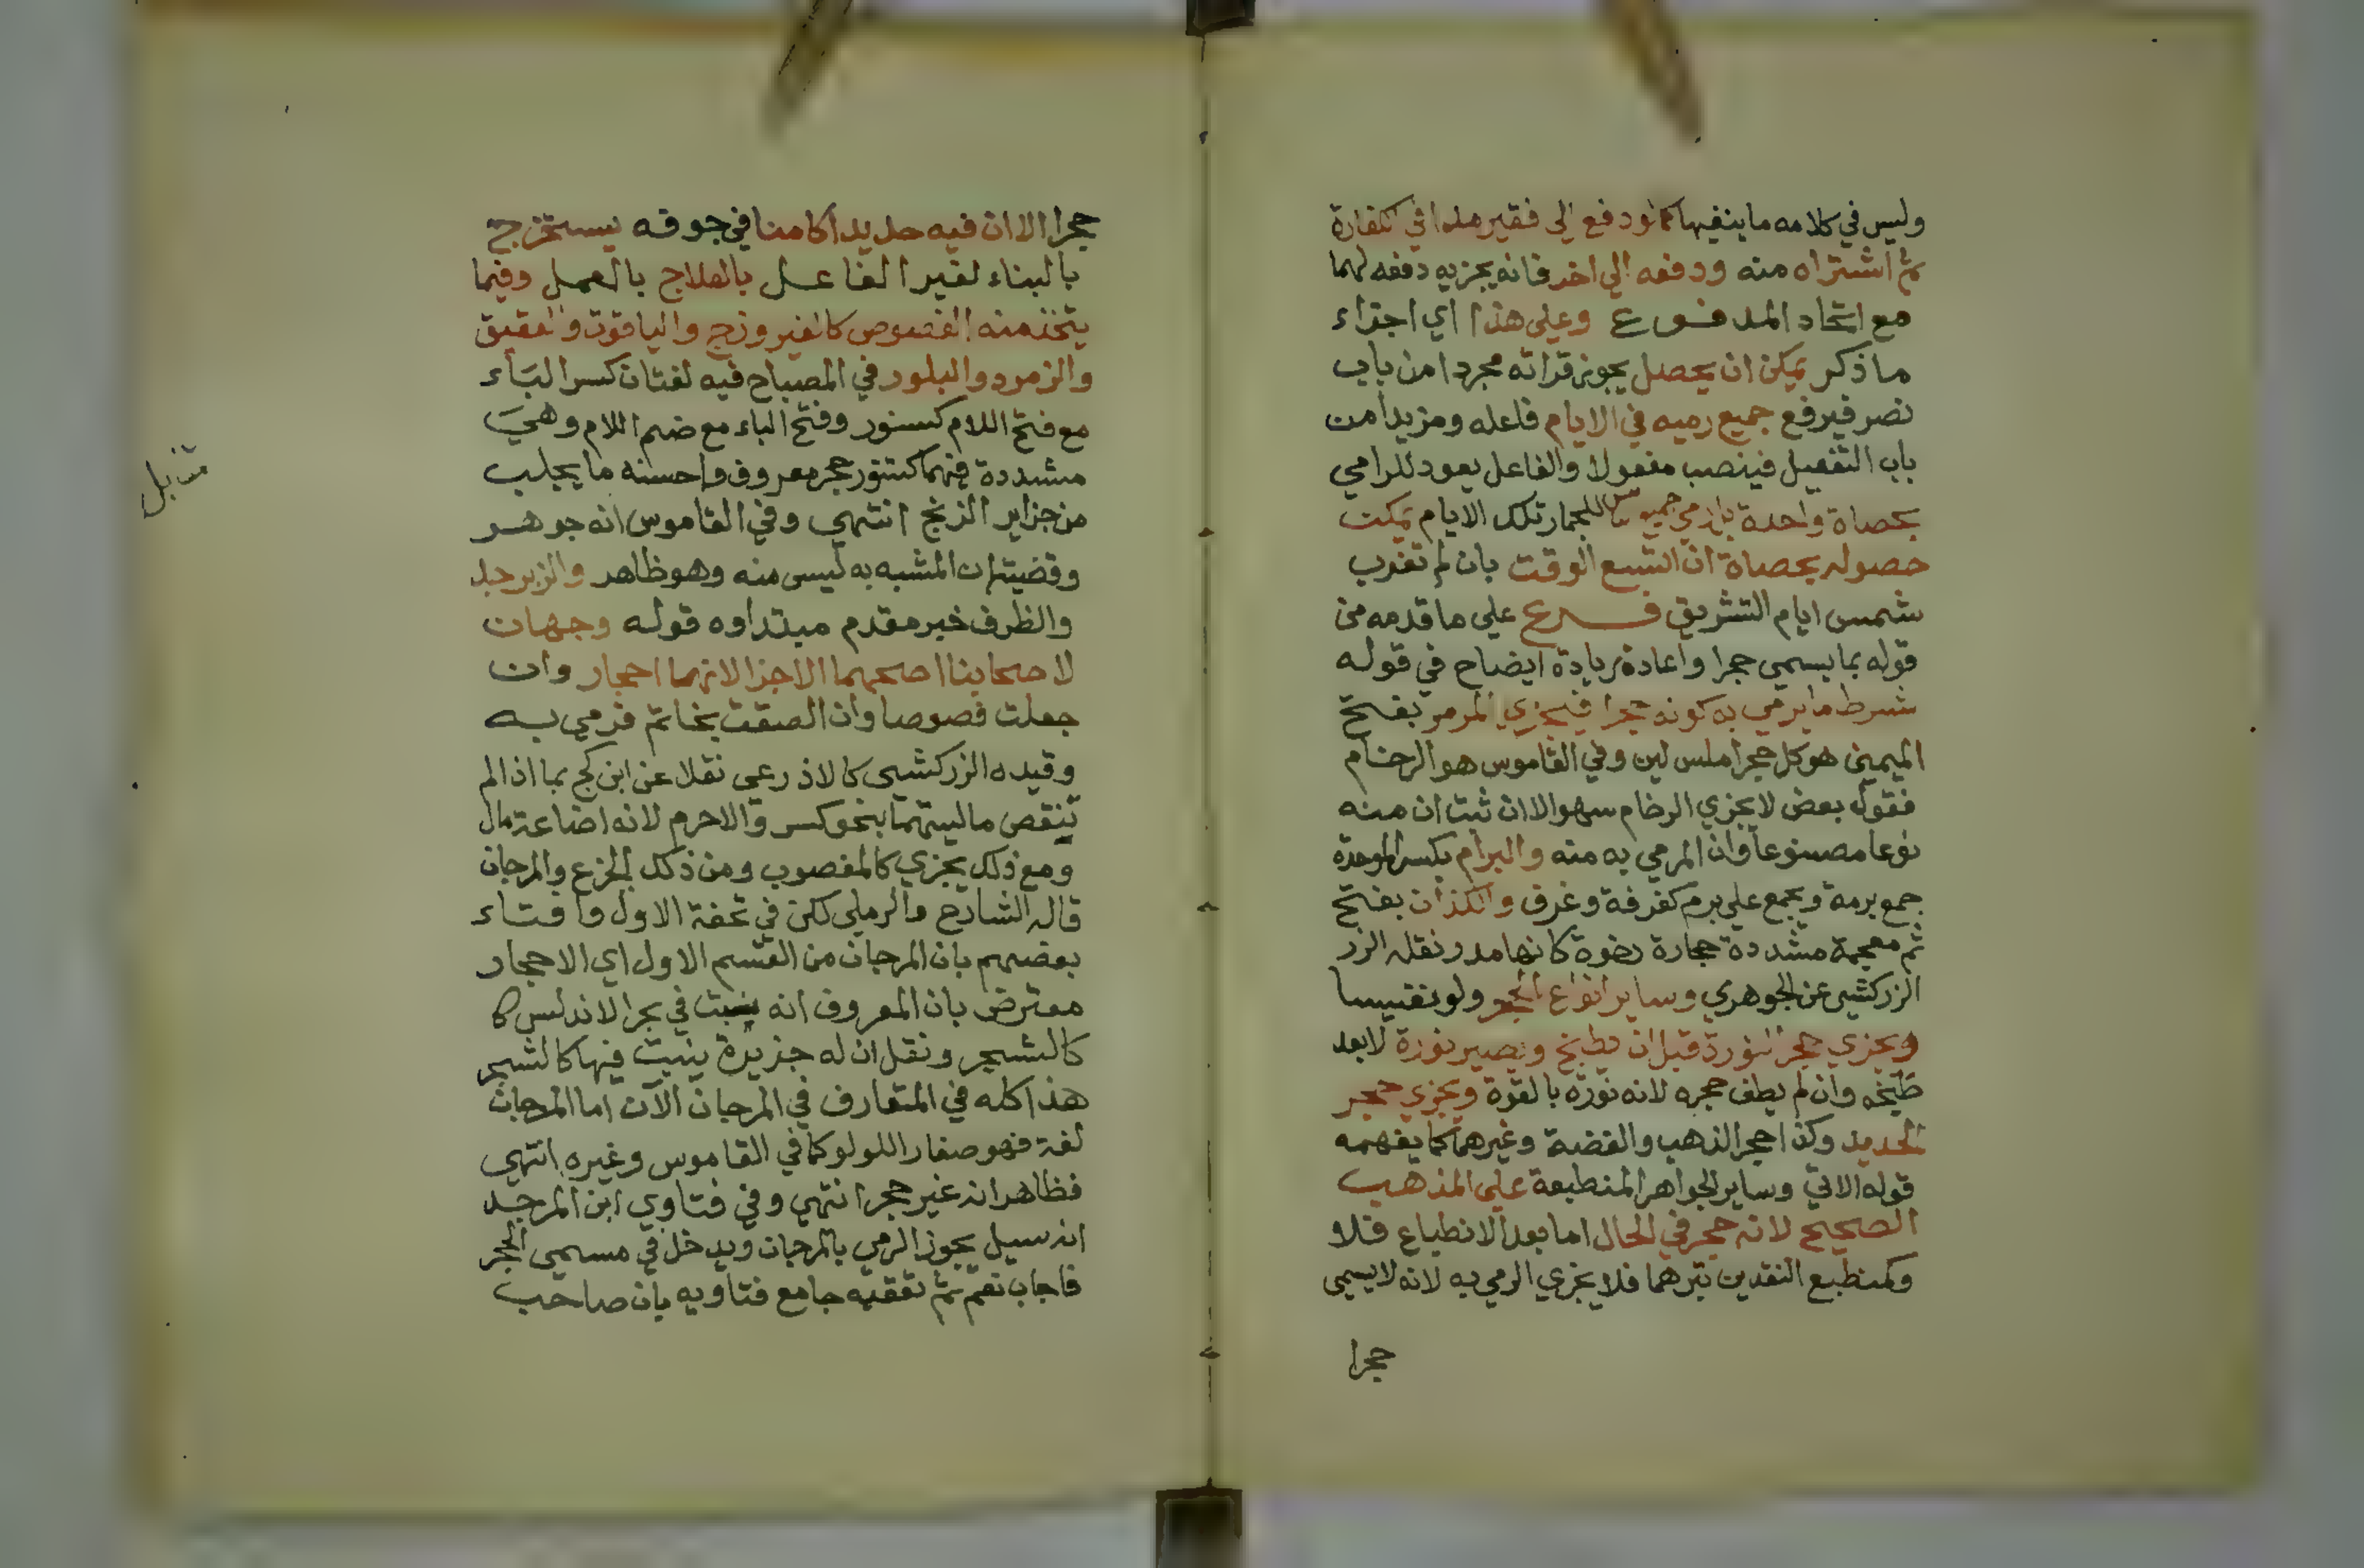 وليس في كلامه ما ينفيها كما لو دفع الي فقير مدا في الكفارة
ثم اشتراه منه ودفعه الي اخر فانه يجزيه دفعه لهما
مع اتحاد المدفوع وعلي هذا اي اجزاء
ما ذكر يمكن ان يحصل يجوز قراته مجردا من باب
نصر فيرفع جميع رميه في الايام فاعله ومزيدا من
باب التفعيل فينصب مفعولا والفاعل يعود للرامي
بحصاة واحدة للجمار تلك الايام يمكن
حصوله بحصاة ان اتسع الوقت بان لم تغرب
شمس ايام التشريق فرع علي ما قدمه من
قوله بما يسمي حجرا واعادة زيادة ايضاح في قوله
شرط ما يرمي به كونه حجرا فيجزي المرمر بفتح
الميمين هو كل حجر املس لين وفي القاموس هو الرخام
فقول بعض لا يجزي الرخام سهو الا ان ثبت ان منه
نوعا مصنوعا وان المرمي به منه والبرام بكسر الموحدة
جمع برمة ويجمع علي برم كغرفة وغرف والكذان بفتح
ثم معجمة مشددة حجارة رخوة كانها مدر ونقله الزر
الزركشي عن الجوهري وساير انواع الحجر ولو نفيسا
ويجزي حجر النورة قبل ان يطبخ ويصير نورة لا بعد
طبخه وان لم يطف حجره لانه نورة بالقوة ويجزي حجر
الحديد وكذا حجر الذهب والفضة وغيرهما كما يفهمه
قوله الاتي وساير الجواهر المنطبعة علي المذهب
الصحيح لانه حجر في الحال اما بعد الانطباع فلا
وكمنطبع النقدين تبرهما فلا يجزي الرمي به لانه لا يسمي
حجرا
حجرا الا ان فيه حديدا كامنا في جوفه يستخرج
بالبناء لغير الفاعل بالعلاج بالعمل وفيما
يتخذ منه الفصوص كالفيروزج والياقوت والعقيق
والزمرد والبلور في المصباح فيه لغتان كسر الباء
مع فتح اللام كسنور وفتح الباء مع ضم اللام وهي
مشددة فيهما كتنور حجر معروف واحسنه ما يجلب
من جزاير الزنج انتهي وفي القاموس انه جوهر
وقضيته ان المشبه به ليس منه وهو ظاهر والزبرجد
والظرف خبر مقدم مبتداوه قوله وجهان
لاصحابنا اصحهما الاجزا لانهما احجار وان
جعلت فصوصا وان الصقت بخاتم فرمي به
وقيده الزركشي كالاذرعي نقلا عن ابن كج بما اذا لم
تنقص ماليتهما بنحو كسر والا حرم لانه اضاعة مال
ومع ذلك يجزي كالمغصوب ومن ذلك الجزع والمرجان
قاله الشارح والرملي لكن في تحفة الاول وافتاء
بعضهم بان المرجان من القسم الاول اي الاحجار
معترض بان المعروف انه ينبت في بحر الاندلس كا
كالشجر ونقل ان له جزيرة ينبت فيها كالشجر
هذا كله في المتعارف في المرجان الآن اما المرجان
لغة فهو صغار اللولو كما في القاموس وغيره انتهي
فظاهر انه غير حجر انتهي وفي فتاوي ابن المرجد
انه سيل يجوز الرمي بالمرجان ويدخل في مسمي الحجر
فاجاب نعم ثم تعقبه جامع فتاويه بان صاحب